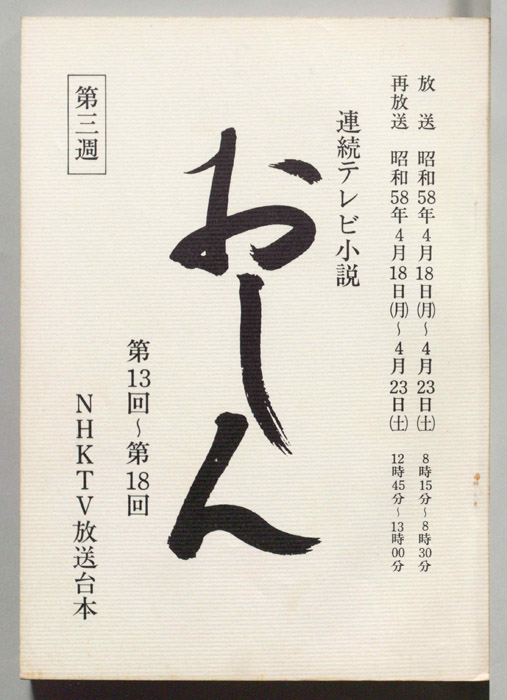 放送 昭和58年4月18日(月)～4月23日(土) 8時15分～8時30分
再放送 昭和58年4月18日(月)～4月23日(土) 12時45分～13時00分
連続テレビ小説
おしん
第13回～第18回
NHKTV放送台本
第三週